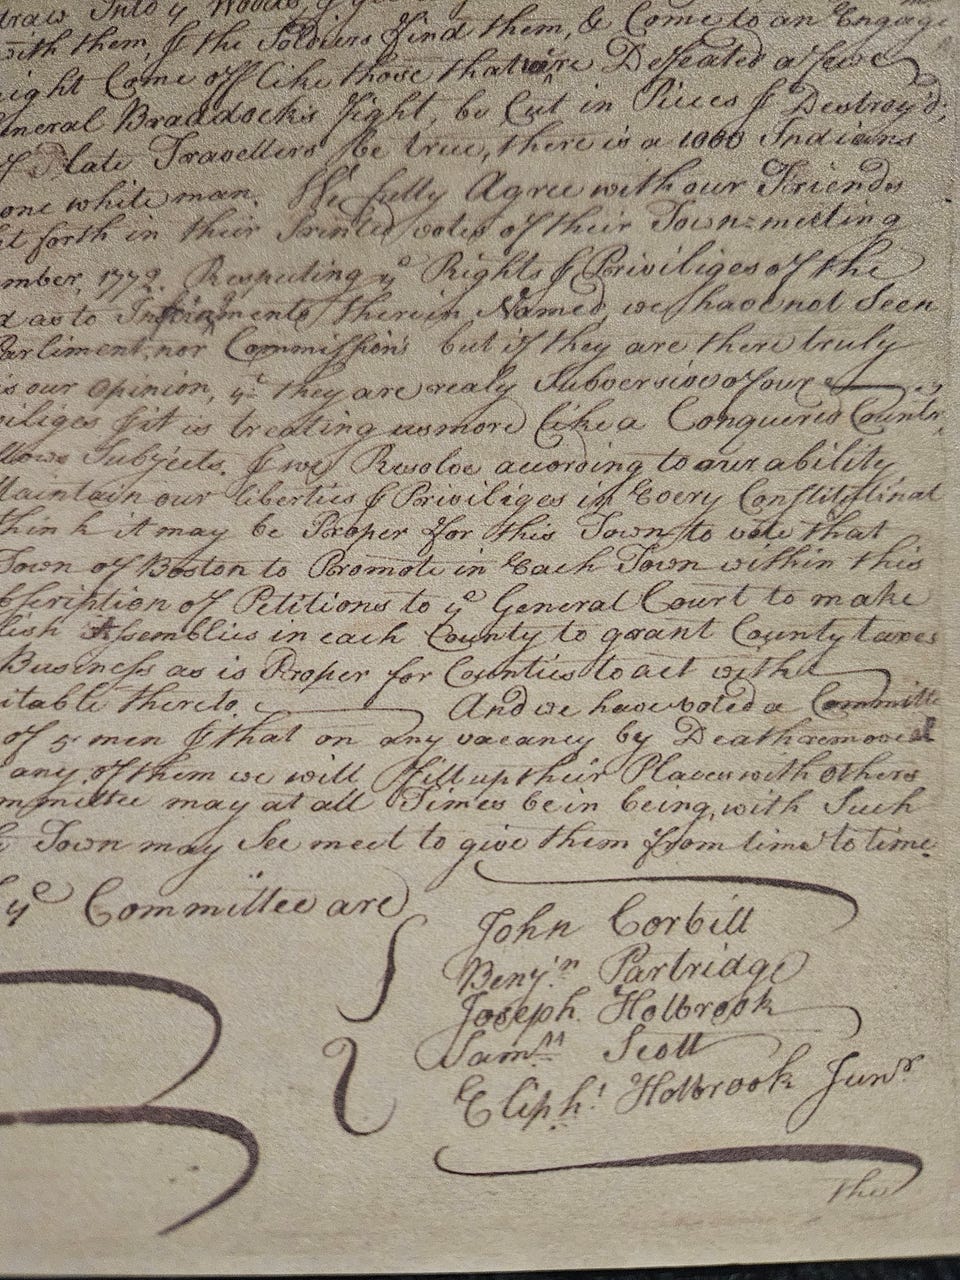 draw Into yᵉ Woods, &
with them, & the Soldiers find them, & Come to an Engage
ight Come off like those that were Defeated a few
eneral Braddock's fight, be Cut in Pieces & Destroy'd;
of late Travellers be true, there is a 1000 Indians
one white man. We fully Agree with our Friends
ht forth in their Printed votes of their Town=meeting
mber, 1772. Respecting yᵉ Rights & Priviliges of the
d as to Infringments therein Named, we have not Seen
Parliment, nor Commissions but if they are there truly
is our opinion, yᵗ they are realy Subversive of our
viliges & it is treating us more like a Conquered Countr
llow Subjects. & we Resolve according to our ability
Maintain our liberties & Priviliges in Every Constitutinal
think it may be Proper for this Town to vote that
Town of Boston to Promote in Each Town within this
bscription of Petitions to yᵉ General Court to make
lish Assemblies in each County to grant County taxes
Business as is Proper for Counties to act with
itable thereto And we have voted a Committe
of 5 men & that on any vacancy by Death removeal
any of them we will fill up their Places with others
mmittee may at all Times be in being, with Such
Town may See meet to give them from time to time.
yᵉ Committee are
John Corbitt
Benjⁿ Partridge
Joseph Holbrook
Samˡˡ Scott
Eliphᵗ Holbrook Junʳ
the